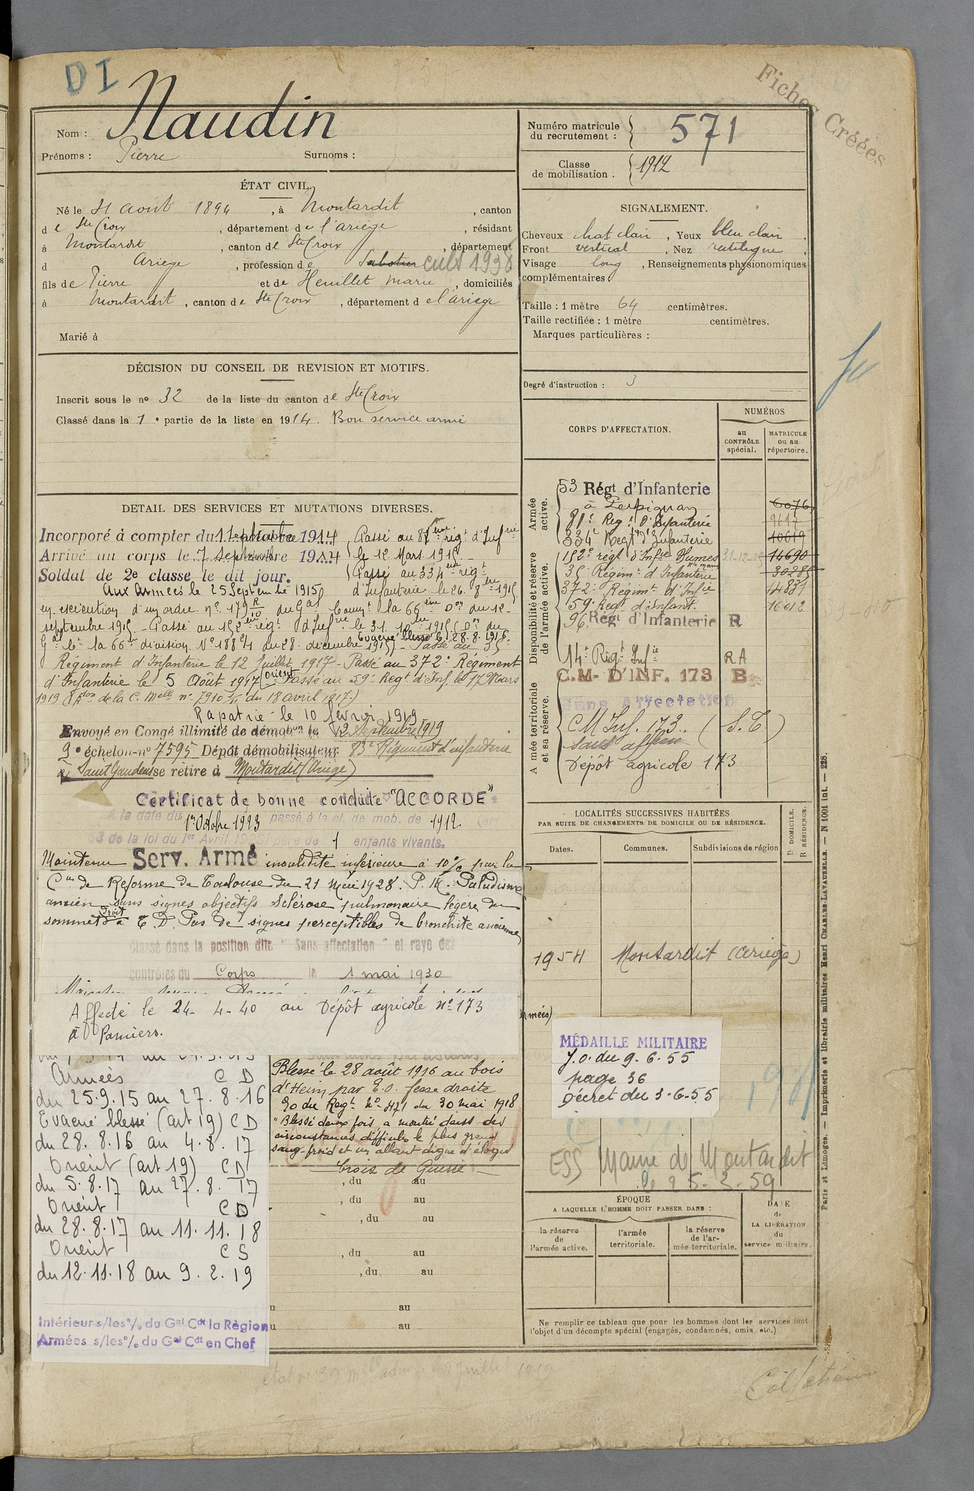 DI
Fiches Créées
Nom : Naudin
Prénoms : Pierre Surnoms :
Numéro matricule du recrutement : 571
Classe de mobilisation . 1912
ÉTAT CIVIL.
Né le 21 août 1894 , à Montardit , canton
de Ste Croix , département de l'ariège , résidant
à Montardit , canton de Ste Croix , département
d Ariège , profession de Sabotier cult 1936
fils de Pierre et de Heuillet marie , domiciliés
à Montardit , canton de Ste Croix , département de l'ariège
Marié à
SIGNALEMENT.
Cheveux chat clair , Yeux bleu clair ,
Front vertical , Nez rectiligne ,
Visage long , Renseignements physionomiques
complémentaires
Taille : 1 mètre 64 centimètres.
Taille rectifiée : 1 mètre centimètres.
Marques particulières :
Degré d'instruction : 3
DÉCISION DU CONSEIL DE REVISION ET MOTIFS.
Inscrit sous le no 32 de la liste du canton de Ste Croix
Classé dans la 1e partie de la liste en 1914. Bon service armé
DÉTAIL DES SERVICES ET MUTATIONS DIVERSES.
Incorporé à compter du 1 septembre 1914
Arrivé au corps le 7 septembre 1914
Soldat de 2e classe, le dit jour.
Passé au 81ème rég. d'Infrie
le 12 Mars 1915
Passé au 334 régt
d'Infanterie le 26. 8bre 1915
Aux Armées le 25 Septembre 1915
en exécution d'un ordre n° 179 R/10 du Gal Commt la 66ème Don du 12
septembre 1915 - Passé au 152ème régt d'Infrie le 31 10bre 1915 (On du
Gal Ct la 66e division N° 1884 du 28. décembre 1915) - Evacué blessé le 28.8.1916. Passé au 35
Régiment d'Infanterie le 12 Juillet 1917 - Passé au 372e Régiment
d'Infanterie le 5 Août 1917 (orient) Passé au 59e Régt d'Inf. le 17 Mars
1919
Rapatrié le 10 février 1919
Envoyé en Congé illimité de démobon le 12 Septembre 1919
9e échelon n° 7595 Dépôt démobilisateur 83e Régiment d'infanterie
St Gaudens se retire à Montardit (Ariège)
Certificat de bonne conduite "ACCORDÉ"
A la date du 1er Octobre 1923 passé à la cl. de mob. de 1912
53 de la loi du 1er Avril père de 1 enfants vivants.
Maintenu Serv. Armé invalidité inférieure à 10% par la
Con de Réforme de Toulouse du 21 Mai 1928. P. M. Paludisme
ancien sans signes objectifs Sclérose pulmonaire légère du
sommet droit à T. D. Pas de signes perceptibles de bronchite ancienne
Classé dans la position dite "Sans affectation" et rayé des
contrôles du Corps le 1 mai 1930
Affecté le 24-4-40 au Dépôt agricole N° 173
à Pamiers.
CORPS D'AFFECTATION.
NUMÉROS
au CONTRÔLE spécial.
MATRICULE OU AU répertoire.
Armée active.
Disponibilité et réserve de l'armée active.
Armée territoriale et sa réserve.
53 Régt d'Infanterie
à Perpignan 6076
81e Reg. d'Infanterie 9617
334 Regt d'Infanterie 10619
152e régt d'Infrie 14690
35 Régimt d'Infanterie
372e Régimt d'Infie
59 Regt d'Infant. 16012
96 Régt d'Infanterie R
14e Régt Infie RA
C.M. D'INF. 173 B
Sans Affectation
C M Inf. 173 (S.T)
sans affectn
Dépôt agricole 173
LOCALITÉS SUCCESSIVES HABITÉES
PAR SUITE DE CHANGEMENTS DE DOMICILE OU DE RÉSIDENCE.
Dates. Communes. Subdivisions de région D. DOMICILE. R. RÉSIDENCE.
1954 Montardit (ariège)
MÉDAILLE MILITAIRE
J.O. du 9.6.55
page 36
décret du 3.6.55
ESS Mairie de Montardit
le 25-2-59
Armées CD
du 25.9.15 au 27.8.16
Evacué blessé (art 19) CD
du 28.8.16 au 4.8.17
Orient (art 19) CD
du 5.8.17 au 27.8.17
Orient CD
du 28.8.17 au 11.11.18
Orient CS
du 12.11.18 au 9.2.19
Intérieur s/les o/ du Gal Cdt la Région
Armées s/les o/ du Gal Cdt en Chef
Blessé le 28 août 1916 au bois
d'Hem par E.O. fesse droite
30 mai 1918
"Blessé deux fois, a montré dans des
circonstances difficiles le plus grand
sang-froid et un allant digne d'éloges
Croix de Guerre
, du au
, du au
, du au
, du au
, du au
au
au
ÉPOQUE
A LAQUELLE L'HOMME DOIT PASSER DANS :
la réserve de l'armée active.
l'armée territoriale.
la réserve de l'armée territoriale.
DATE de LA LIBÉRATION du service militaire.
Ne remplir ce tableau que pour les hommes dont les services font
l'objet d'un décompte spécial (engagés, condamnés, omis, etc.)
Paris et Limoges. — Imprimerie et librairie militaires Henri CHARLES-LAVAUZELLE. — N° 1001 int. — 228.